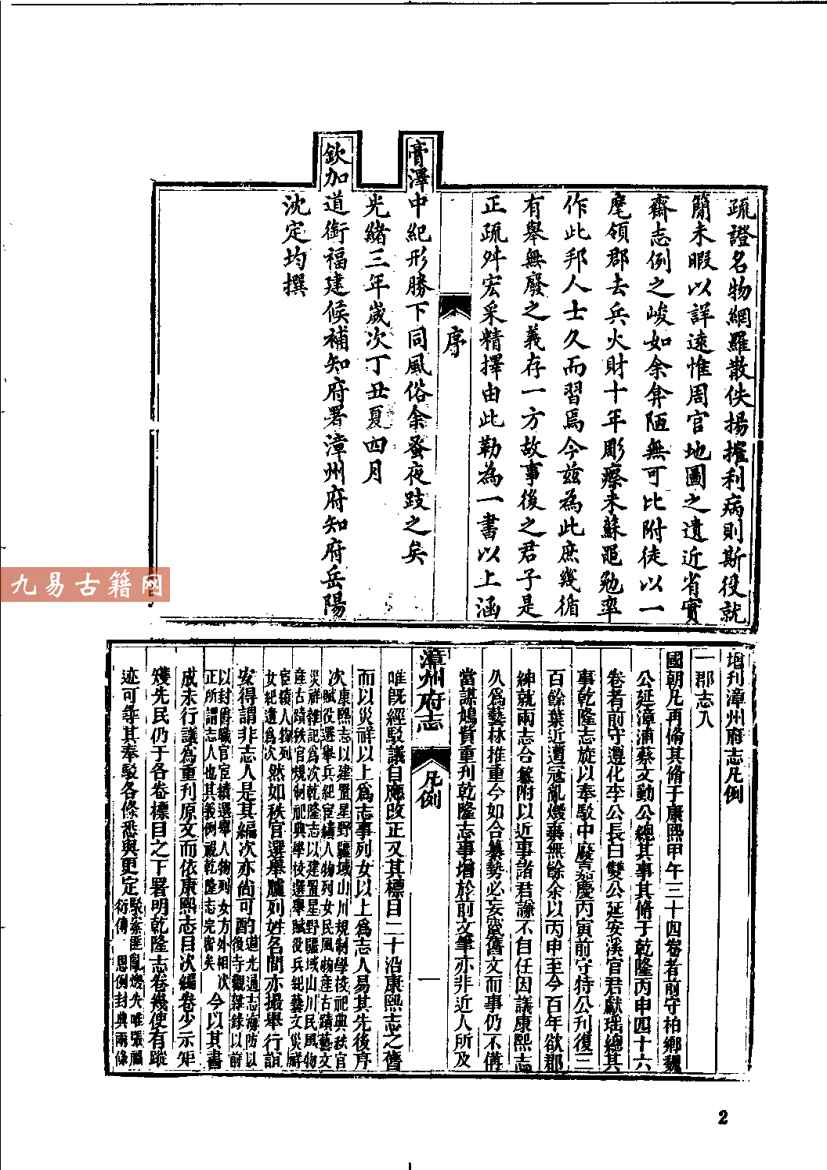 疏證名物網羅散佚揚搉利病則斯役就
簡未暇以詳遠惟周官地圖之遺近省實
齋志例之峻如余弇陋無可比附徒以一
麾領郡去兵火財十年彫瘵未蘇黽勉率
作此邦人士久而習焉今玆為此庶幾循
有舉無廢之義存一方故事後之君子是
正疏舛宏采精擇由此勒為一書以上涵
序
膏澤中紀形勝下同風俗余蚤夜跂之矣
光緒三年歲次丁丑夏四月
欽加道銜福建候補知府署漳州府知府岳陽
沈定均撰
增刊漳州府志凡例
一郡志入
國朝凡再脩其脩于康熙甲午三十四卷者前守柏鄉魏
公延漳浦蔡文勤公總其事其脩于乾隆丙申四十六
卷者前守遵化李公長白雙公延安溪官君獻瑤總其
事乾隆志旋以奉駁中廢嘉慶丙寅前守特公刋復二
百餘葉近遭冦亂燬棄無餘余以丙申至今百年欲郡
紳就兩志合纂附以近事諸君謙不自任因議康熙志
久爲藝林推重今如合纂勢必妄竄舊文而事仍不備
當謀鳩貲重刋乾隆志事增於前文筆亦非近人所及
漳州府志
凡例
一
唯旣經駁議自應改正又其標目二十沿康熙志之舊
而以災祥以上爲志事列女以上爲志人易其先後序
次康熙志以建置星野疆域山川規制學校祀典秩官
賦役選舉兵紀宦績人物列女民風物産古蹟藝文
災祥雜記爲次乾隆志以建置星野疆域山川民風物
産古蹟秩官規制祀典學校選舉賦役兵紀藝文災祥
宦績人物列
女紀遺爲次然如秩官選舉臚列姓名間亦撮舉行誼
安得謂非志人是其編次亦尚可酌道光通志海防以
後寺觀雜錄以前
以封爵職官宦績選舉人物列女方外相次
正所謂志人也其義例視乾隆志完密矣今以其書
成未行議爲重刋原文而依康熙志目次編卷少示矩
矱先民仍于各卷標目之下署明乾隆志卷幾使有蹤
迹可尋其奉駁各條悉與更定駁案匪亂燬失唯張福
衍傳恩例封典兩條
2
九易古籍网